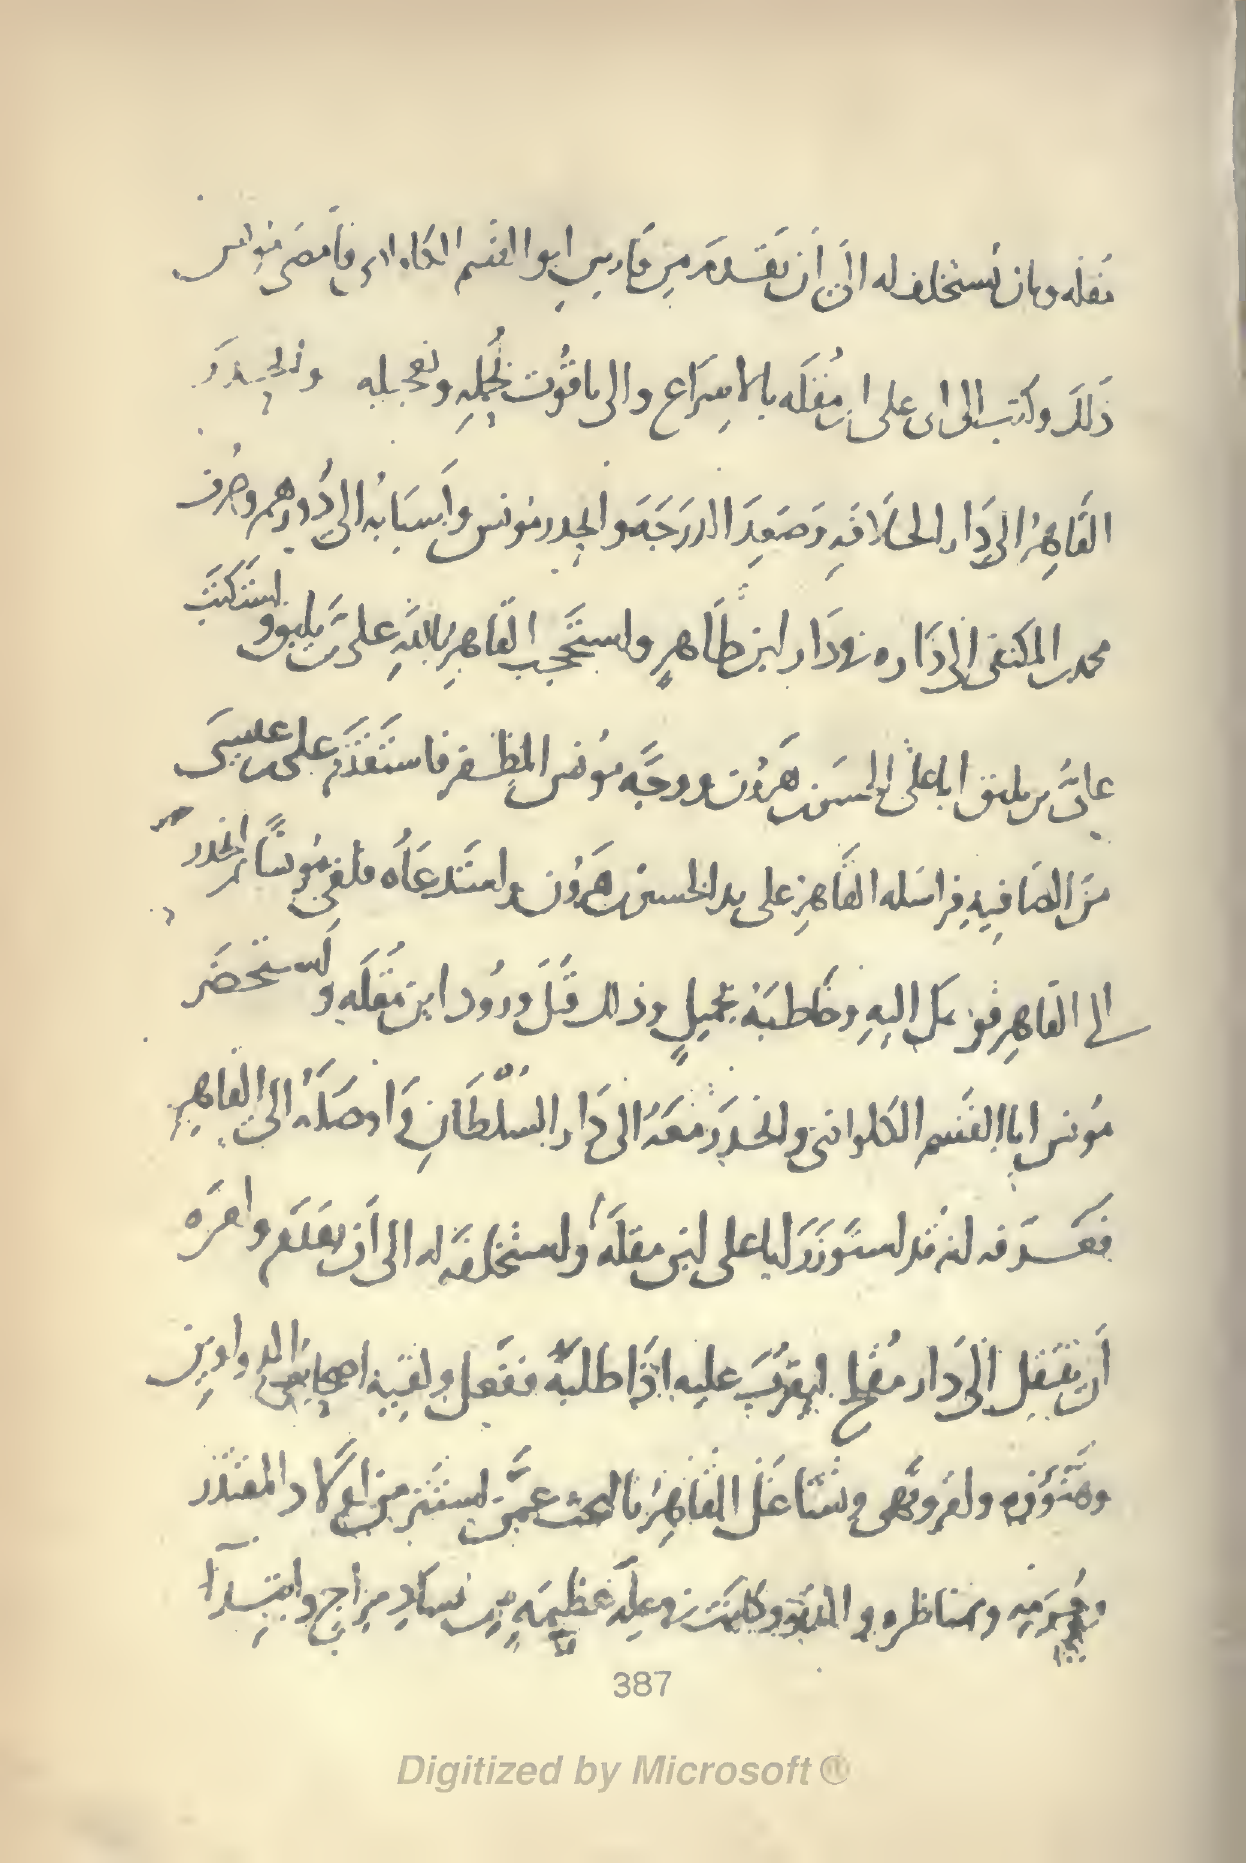 مقله وبان يستخلف له الى ان يقدم من فارس ابو القسم الكلوادى فامضى مونس
ذلك وكتب الى ابى على ابن مقله بالاسراع والى ياقوت بحمله وتعجيله وانحدر
القاهر الى دار الخلافه وصعد الدرجه وانحدر مونس واسبابه الى دورهم وصرف
محمد بن المكتفى الى داره فى دار ابن طاهر واستحجب القاهر بالله على بن يلبق واستكتب
على بن يلبق ابا على الحسن بن هرون ووجه مونس المظفر فاستقدم على بن عيسى
من الصافيه فراسله القاهر على يد الحسن بن هرون واستدعاه فلقى مونسا ثم انحدر
الى القاهر فوصل اليه وخاطبه بجميل وذلك قبل ورود ابن مقله واستحضر
مونس ابا القسم الكلواذى وانحدر معه الى دار السلطان فاوصله الى القاهر
فعرفه انه قد استوزر ابا على ابن مقله واستخلفه له الى ان يقدم وامره
ان ينتقل الى دار مفلح ليقرب عليه اذا طلبه ففعل ولقيه اصحاب الدواوين
وهنؤوه وانصرف وتشاغل القاهر بالبحث عمن استتر من اولاد المقتدر
وحرمه وبمناظره والده المقتدر وكانت فى عله عظيمه من فساد مزاج وابتدا
387
Digitized by Microsoft ®